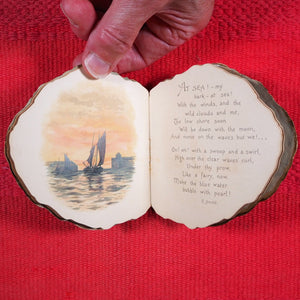 AT SEA! - my
bark - at sea!
With the winds, and the
wild clouds and me,
The low shore soon
Will be down with the moon,
And none on the waves but we! ...
On! on! with a swoop and a swirl,
High over the clear waves curl,
Under thy prow
Like a fairy, now
Make the blue water
bubble with pearl!